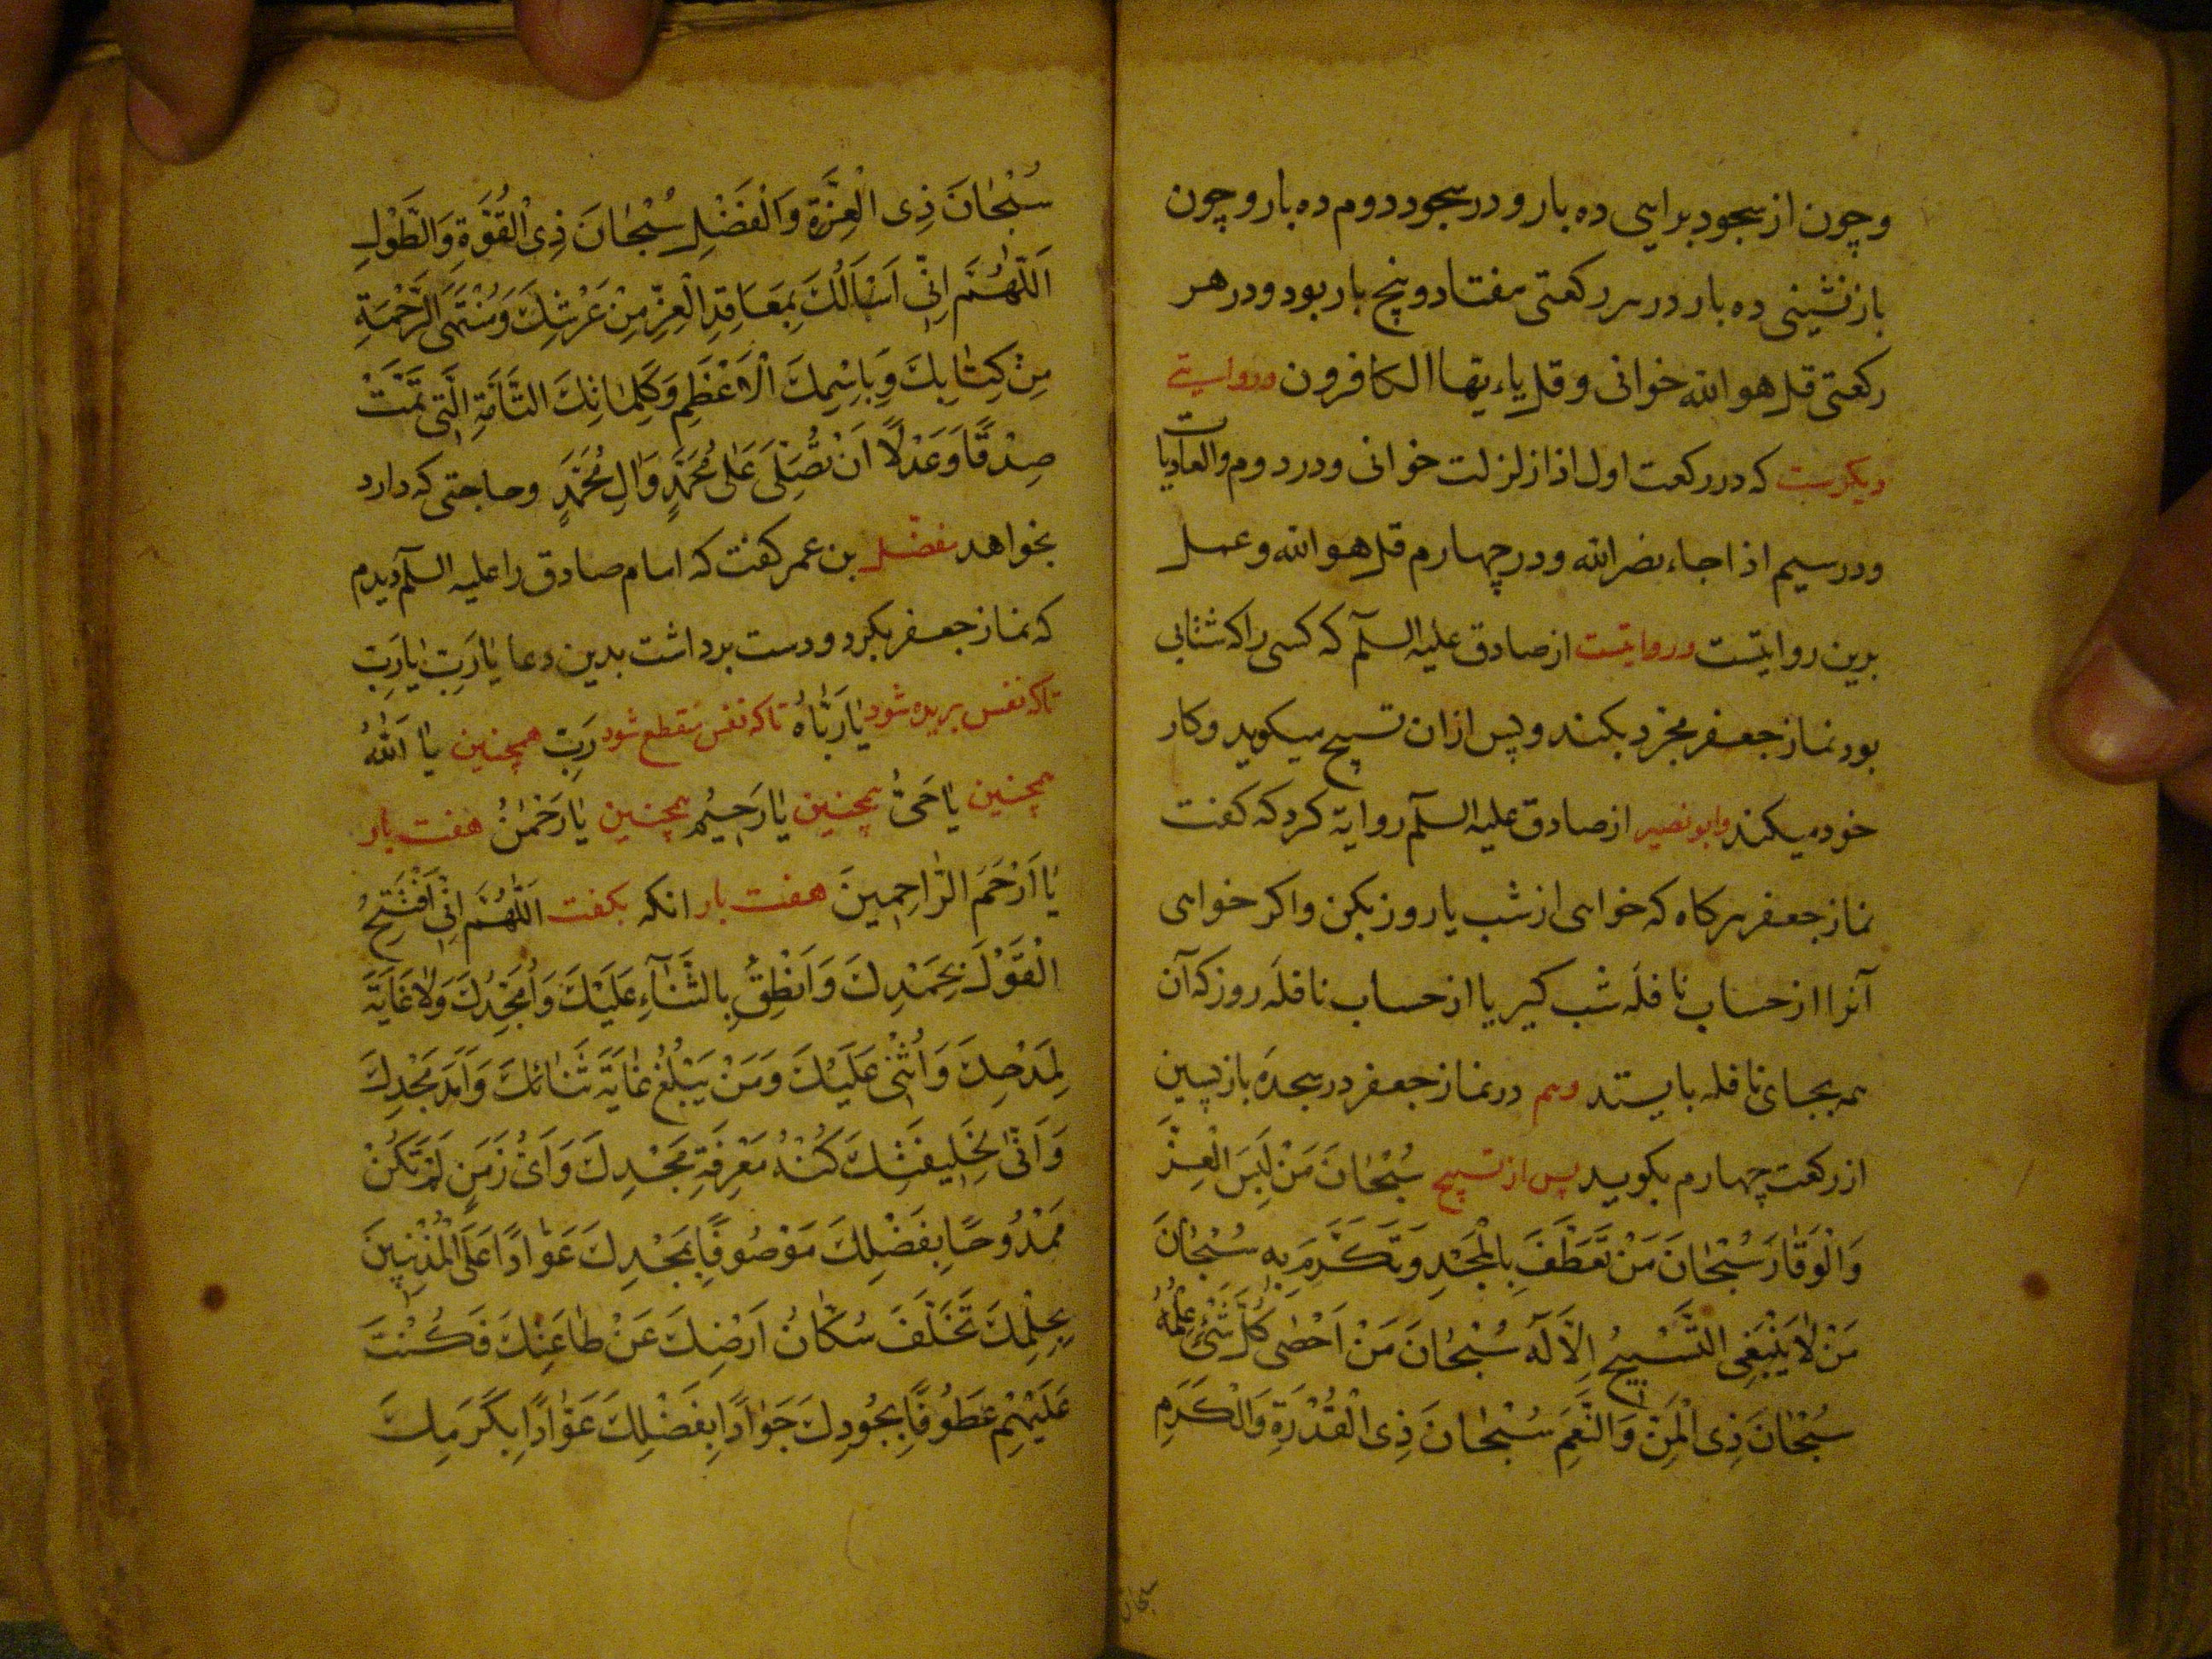 وچون از سجود برایی ده بار و در سجود دوم ده بار و چون
باز نشینی ده بار در هر رکعتی هفتاد و پنج بار بود و در هر
رکعتی قل هو الله خوانی و قل یاءیها الکافرون و روایتی
دیکرست که در رکعت اول اذا زلزلت خوانی و در دوم والعادیات
و در سیم اذا جاء نصر الله و در چهارم قل هو الله و عمل
برین روایتست و روایتست از صادق علیه السلم که کسی را که شتابی
بود نماز جعفر مجرد بکند و پس از ان تسبیح میکوید و کار
خود میکند و ابو بصیر از صادق علیه السلم روایة کرد که کفت
نماز جعفر هرکاه که خواهی از شب یا روز بکن و اکر خواهی
آنرا از حساب نافله شب کیر یا از حساب نافله روز که آن
هم بجای نافله بایستد و هم در نماز جعفر در سجده باز پسین
از رکعت چهارم بکوید پس از تسبیح سُبْحٰانَ مَنْ لَبِسَ الْعِزَّ
وَالْوَقٰارَ سُبْحٰانَ مَنْ تَعَطَّفَ بِالْمَجْدِ وَتَكَرَّمَ بِهِ سُبْحٰانَ
مَنْ لٰا يَنْبَغِي التَّسْبِيحُ اِلّٰا لَهُ سُبْحٰانَ مَنْ اَحْصٰى كُلَّ شَيْءٍ عِلْمُهُ
سُبْحٰانَ ذِى الْمَنِّ وَالنِّعَمِ سُبْحٰانَ ذِى الْقُدْرَةِ وَالْكَرَمِ
سبحان
سُبْحٰانَ ذِى الْعِزَّةِ وَالْفَضْلِ سُبْحٰانَ ذِى الْقُوَّةِ وَالطَّوْلِ
اَللّٰهُمَّ اِنِّى اَسْاَلُكَ بِمَعَاقِدِ الْعِزِّ مِنْ عَرْشِكَ وَمُنْتَهَى الرَّحْمَةِ
مِنْ كِتٰابِكَ وَبِاسْمِكَ الْاَعْظَمِ وَكَلِمٰاتِكَ التَّامَّةِ الَّتِى تَمَّتْ
صِدْقًا وَعَدْلًا اَنْ تُصَلِّىَ عَلٰى مُحَمَّدٍ وَاٰلِ مُحَمَّدٍ وحاجتی که دارد
بخواهد مفضل بن عمر کفت که امام صادق را علیه السلم دیدم
که نماز جعفر بکرد و دست برداشت بدین دعا یٰا رَبِّ یٰا رَبِّ
تا که نفس بریده شود یٰا رَبّٰاهُ تا که نفس منقطع شود رَبِّ همچنین یٰا اَللّٰهُ
همچنین یٰا حَىُّ همچنین یٰا رَحِيمُ همچنین یٰا رَحْمٰنُ هفت بار
یٰا اَرْحَمَ الرّٰاحِمِينَ هفت بار انکه بکفت اَللّٰهُمَّ اِنِّى اَفْتَتِحُ
الْقَوْلَ بِحَمْدِكَ وَاَنْطِقُ بِالثَّنٰآءِ عَلَيْكَ وَاُمَجِّدُكَ وَلٰا غَايَةَ
لِمَدْحِكَ وَاُثْنِى عَلَيْكَ وَمَنْ يَبْلُغُ غٰايَةَ ثَنٰائِكَ وَاَمَدَ مَجْدِكَ
وَاَنّٰى لِخَلِيقَتِكَ كُنْهُ مَعْرِفَةِ مَجْدِكَ وَاَىُّ زَمَنٍ لَمْ تَكُنْ
مَمْدُوحًا بِفَضْلِكَ مَوْصُوفًا بِمَجْدِكَ عَوّٰادًا عَلَى الْمُذْنِبِينَ
بِحِلْمِكَ تَخَلَّفَ سُكّٰانُ اَرْضِكَ عَنْ طٰاعَتِكَ فَكُنْتَ
عَلَيْهِمْ عَطُوفًا بِجُودِكَ جَوٰادًا بِفَضْلِكَ عَوّٰادًا بِكَرَمِكَ